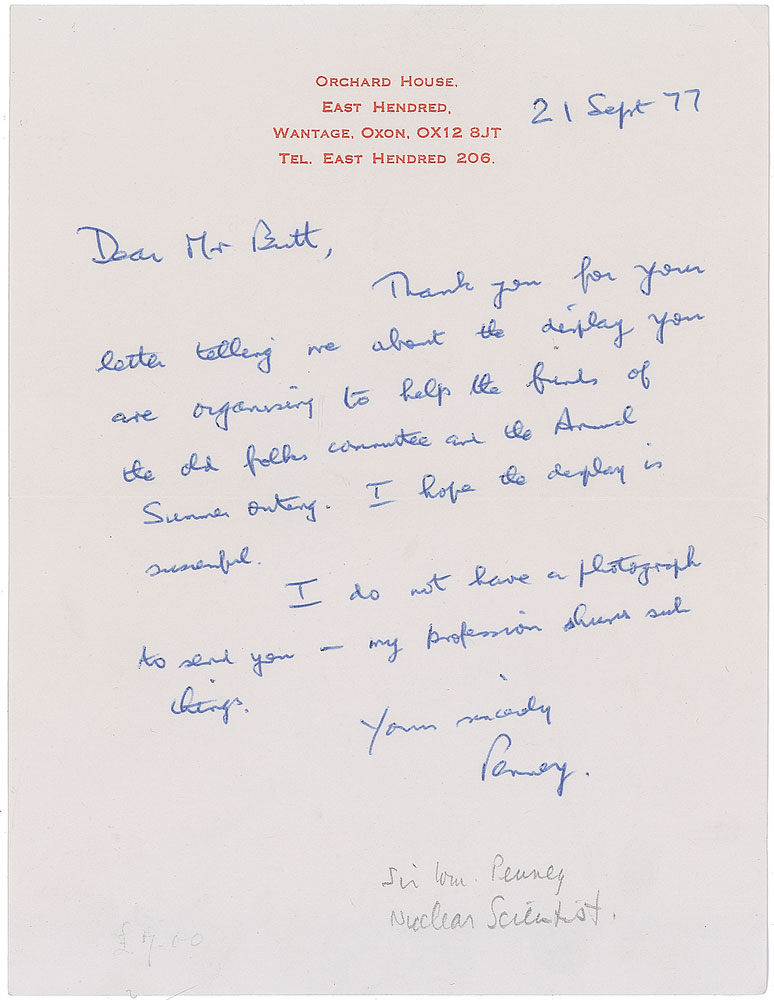 ORCHARD HOUSE,
EAST HENDRED,
WANTAGE, OXON, OX12 8JT
TEL. EAST HENDRED 206.
21 Sept 77
Dear Mr Butt,
Thank you for your
letter telling me about the display you
are organising to help the funds of
the old folks committee and the Annual
Summer outing. I hope the display is
successful.
I do not have a photograph
to send you — my profession shuns such
things.
Yours sincerely
Penney.
Sir Wm. Penney
Nuclear Scientist.